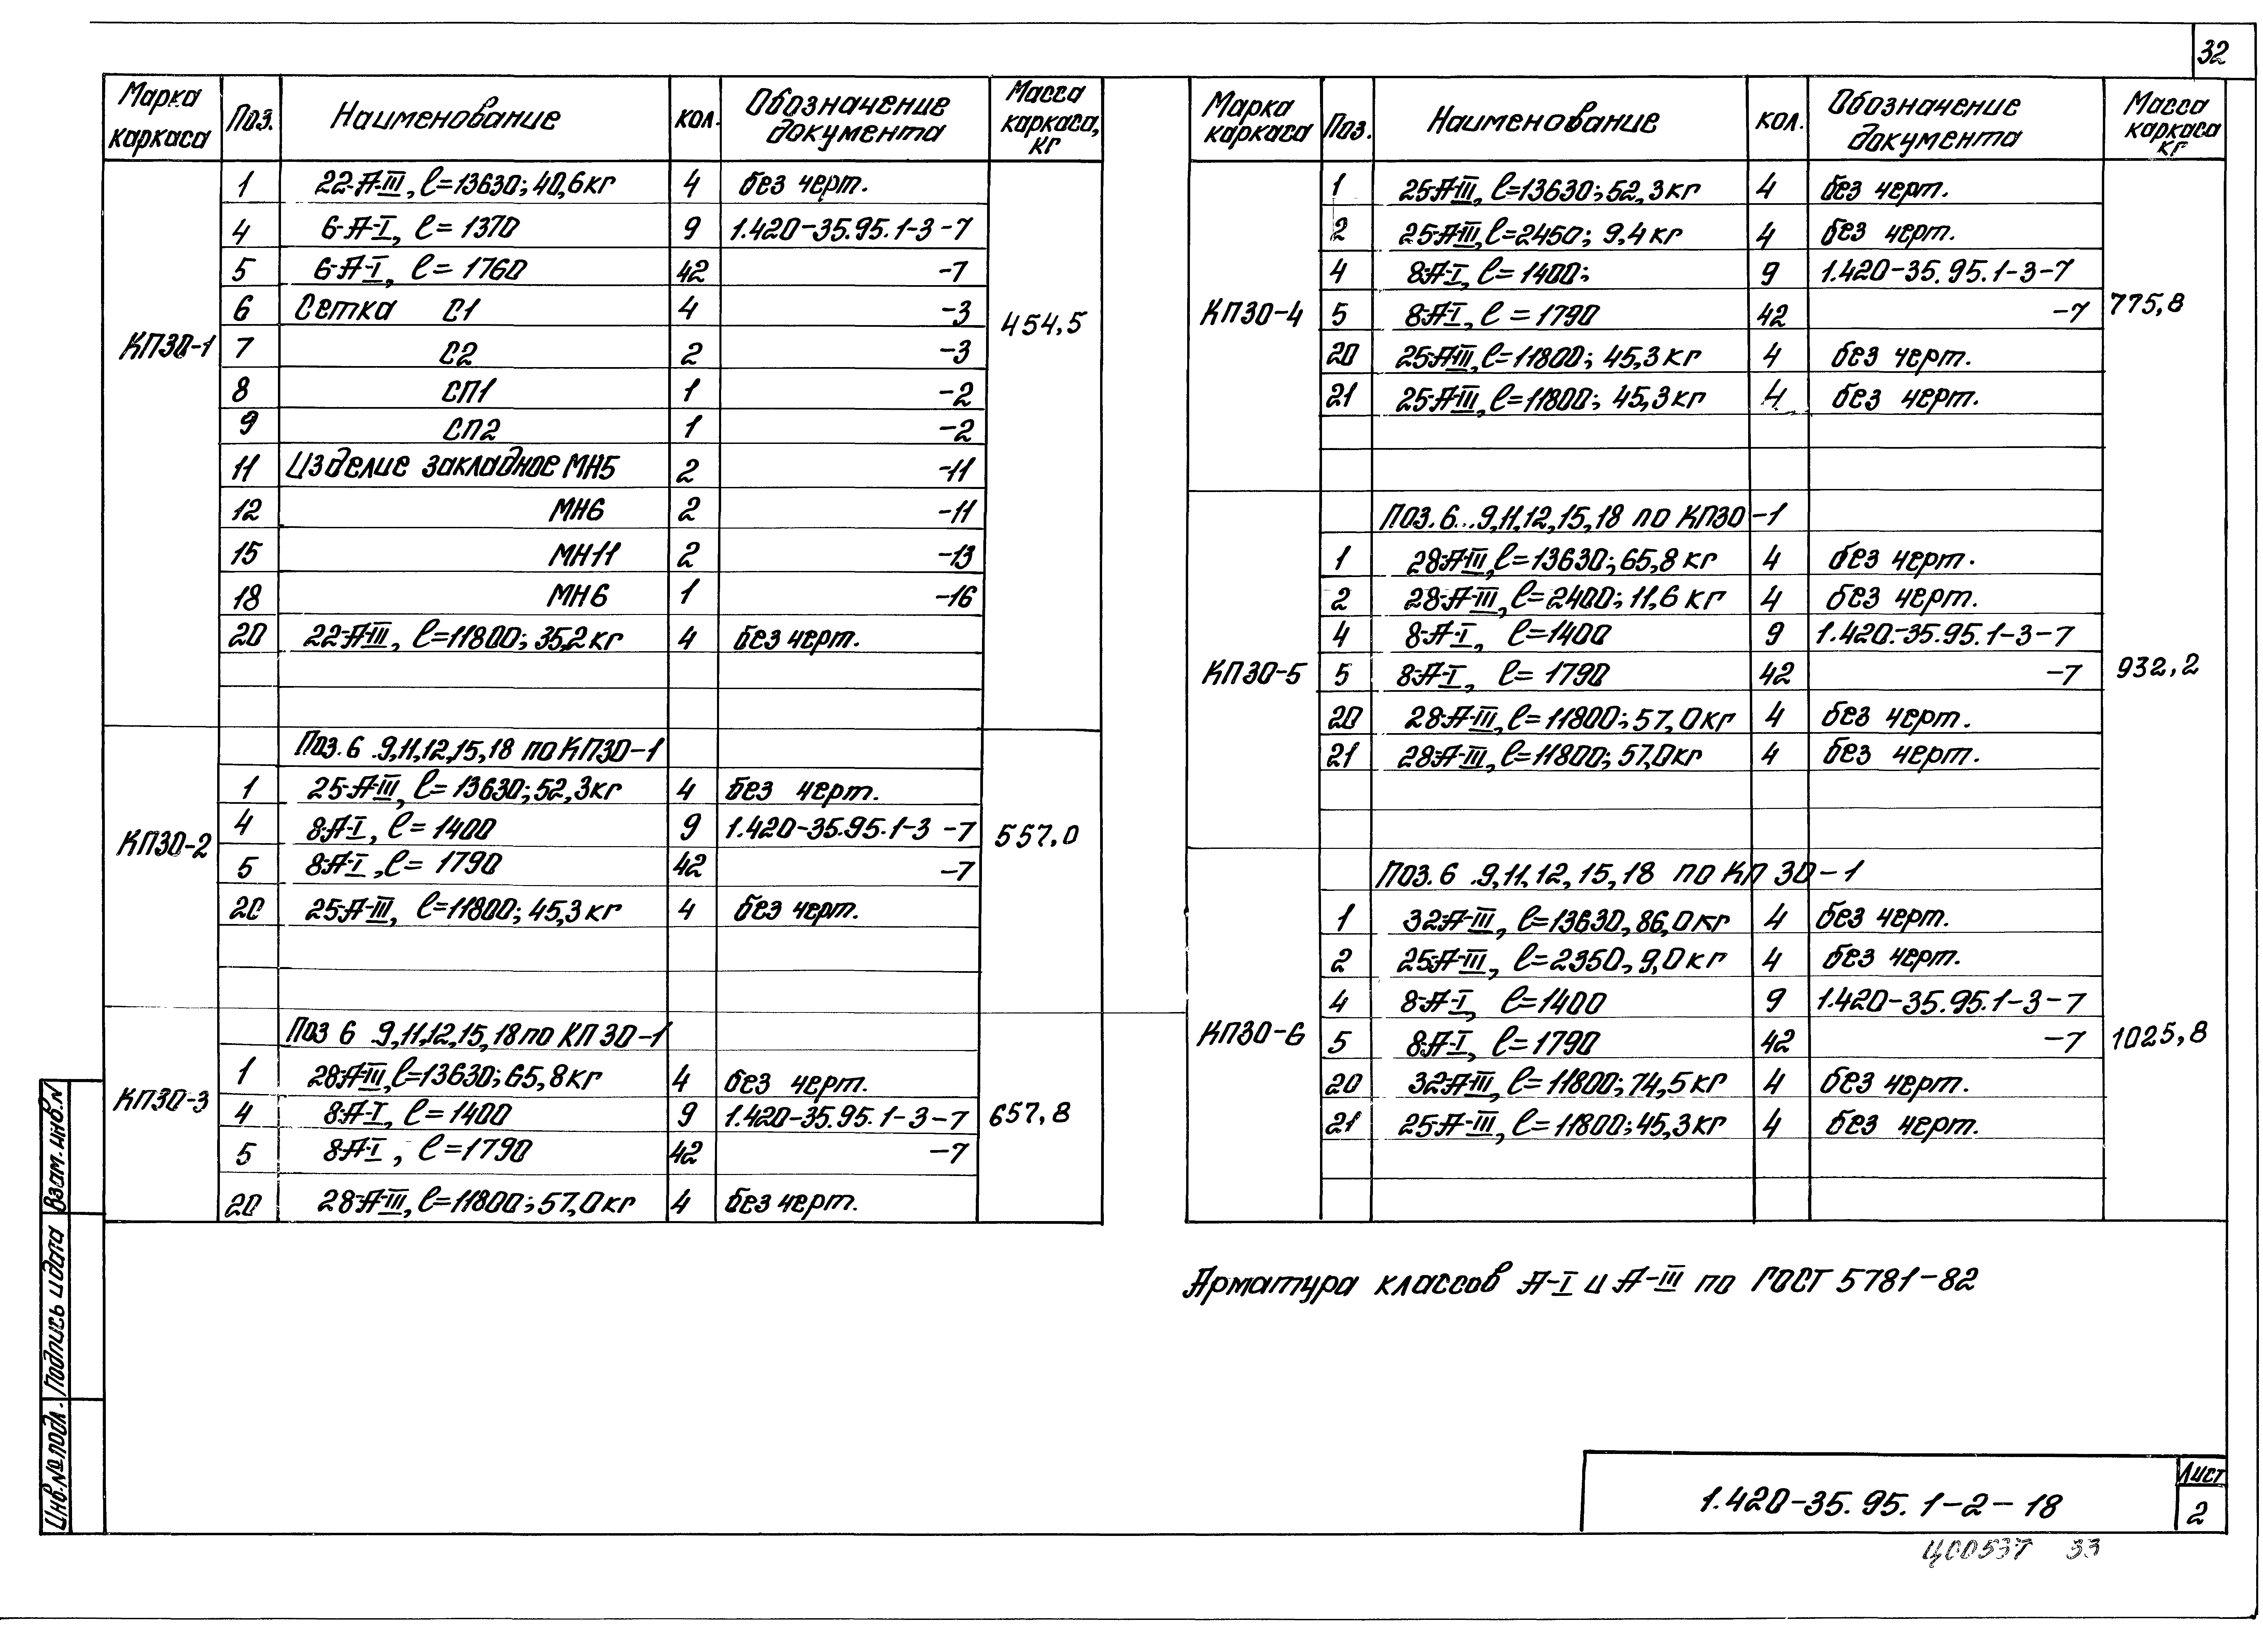 32
Марка каркаса Поз. Наименование кол. Обозначение документа Масса каркаса, кг
КП30-1 454,5
1 22-А-III, ℓ=13630; 40,6кг 4 без черт.
4 6-А-I, ℓ= 1370 9 1.420-35.95.1-3-7
5 6-А-I, ℓ= 1760 42 -7
6 Сетка С1 4 -3
7 С2 2 -3
8 СП1 1 -2
9 СП2 1 -2
11 Изделие закладное МН5 2 -11
12 МН6 2 -11
15 МН11 2 -13
18 МН6 1 -16
20 22-А-III, ℓ=11800; 35,2кг 4 без черт.
КП30-2 557,0
Поз. 6 .9,11,12,15,18 по КП30-1
1 25-А-III, ℓ=13630; 52,3кг 4 без черт.
4 8-А-I, ℓ= 1400 9 1.420-35.95.1-3-7
5 8-А-I, ℓ= 1790 42 -7
20 25-А-III, ℓ=11800; 45,3кг 4 без черт.
КП30-3 657,8
Поз 6 .9,11,12,15,18 по КП30-1
1 28-А-III, ℓ=13630; 65,8кг 4 без черт.
4 8-А-I, ℓ=1400 9 1.420-35.95.1-3-7
5 8-А-I, ℓ=1790 42 -7
20 28-А-III, ℓ=11800; 57,0кг 4 без черт.
Марка каркаса Поз. Наименование кол. Обозначение документа Масса каркаса кг
КП30-4 775,8
1 25-А-III, ℓ=13630; 52,3кг 4 без черт.
2 25-А-III, ℓ=2450; 9,4кг 4 без черт.
4 8-А-I, ℓ= 1400; 9 1.420-35.95.1-3-7
5 8-А-I, ℓ = 1790 42 -7
20 25-А-III, ℓ=11800; 45,3кг 4 без черт.
21 25-А-III, ℓ=11800; 45,3кг 4 без черт.
КП30-5 932,2
Поз. 6...9,11,12,15,18 по КП30-1
1 28-А-III, ℓ=13630; 65,8кг 4 без черт.
2 28-А-III, ℓ=2400; 11,6кг 4 без черт.
4 8-А-I, ℓ=1400 9 1.420-35.95.1-3-7
5 8-А-I, ℓ= 1790 42 -7
20 28-А-III, ℓ=11800; 57,0кг 4 без черт.
21 28-А-III, ℓ=11800; 57,0кг 4 без черт.
КП30-6 1025,8
Поз. 6 .9,11,12,15,18 по КП30-1
1 32-А-III, ℓ=13630, 86,0кг 4 без черт.
2 25-А-III, ℓ=2350, 9,0кг 4 без черт.
4 8-А-I, ℓ=1400 9 1.420-35.95.1-3-7
5 8-А-I, ℓ=1790 42 -7
20 32-А-III, ℓ=11800; 74,5кг 4 без черт.
21 25-А-III, ℓ=11800; 45,3кг 4 без черт.
Арматура классов А-I и А-III по ГОСТ 5781-82
Взам. инв. №
Подпись и дата
Инв. № подл.
1.420-35.95.1-2-18
Лист
2
Ц00537 33